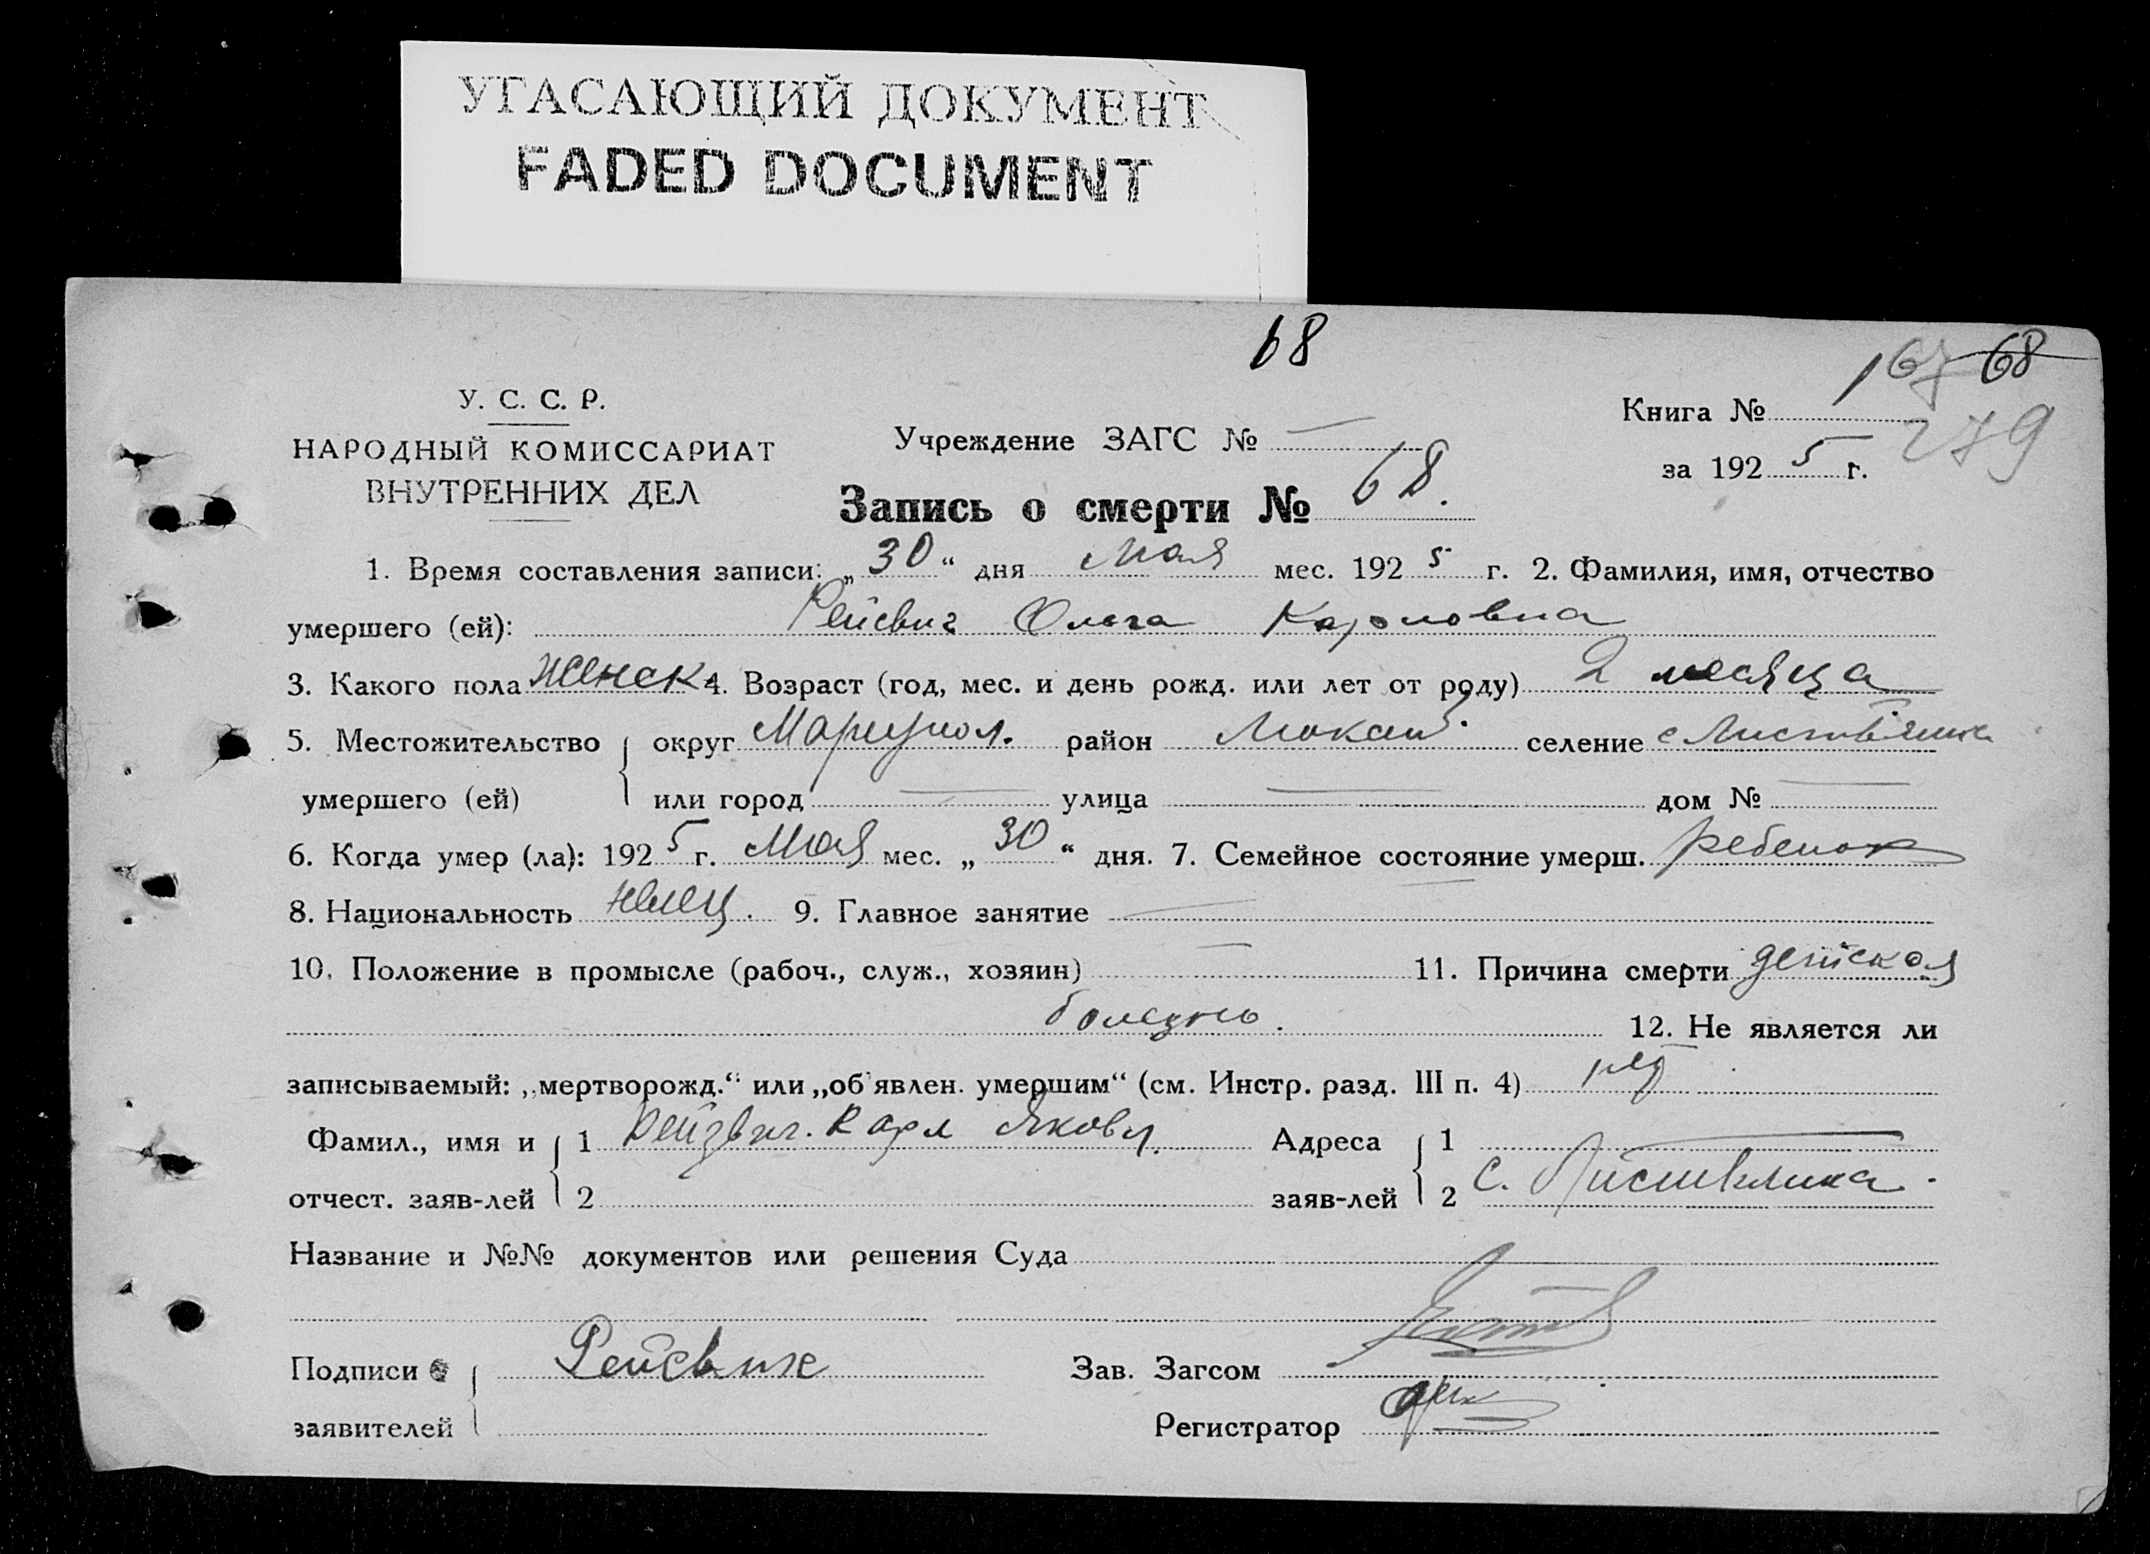 УГАСАЮЩИЙ ДОКУМЕНТ
FADED DOCUMENT
68
167 68
279
У. С. С. Р.
НАРОДНЫЙ КОМИССАРИАТ
ВНУТРЕННИХ ДЕЛ
Учреждение ЗАГС № —
Книга №
за 1925 г.
Запись о смерти № 68.
1. Время составления записи: „30“ дня Мая мес. 1925 г. 2. Фамилия, имя, отчество
умершего (ей): Рейсвиг Ольга Карловна
3. Какого пола женск 4. Возраст (год, мес. и день рожд. или лет от роду) 2 месяца
5. Местожительство округ Мариупол. район селение с
умершего (ей) или город — улица — дом № —
6. Когда умер (ла): 1925 г. Мая мес. „30“ дня. 7. Семейное состояние умерш. ребенок
8. Национальность немец. 9. Главное занятие —
10. Положение в промысле (рабоч., служ., хозяин) — 11. Причина смерти детская
болезнь. 12. Не является ли
записываемый: „мертворожд.“ или „об'явлен. умершим“ (см. Инстр. разд. III п. 4) нет
Фамил., имя и 1 Рейзвиг. Карл Яковл. Адреса 1
отчест. заяв-лей 2 заяв-лей 2 с.
Название и №№ документов или решения Суда
Подписи Рейсвих Зав. Загсом
заявителей Регистратор